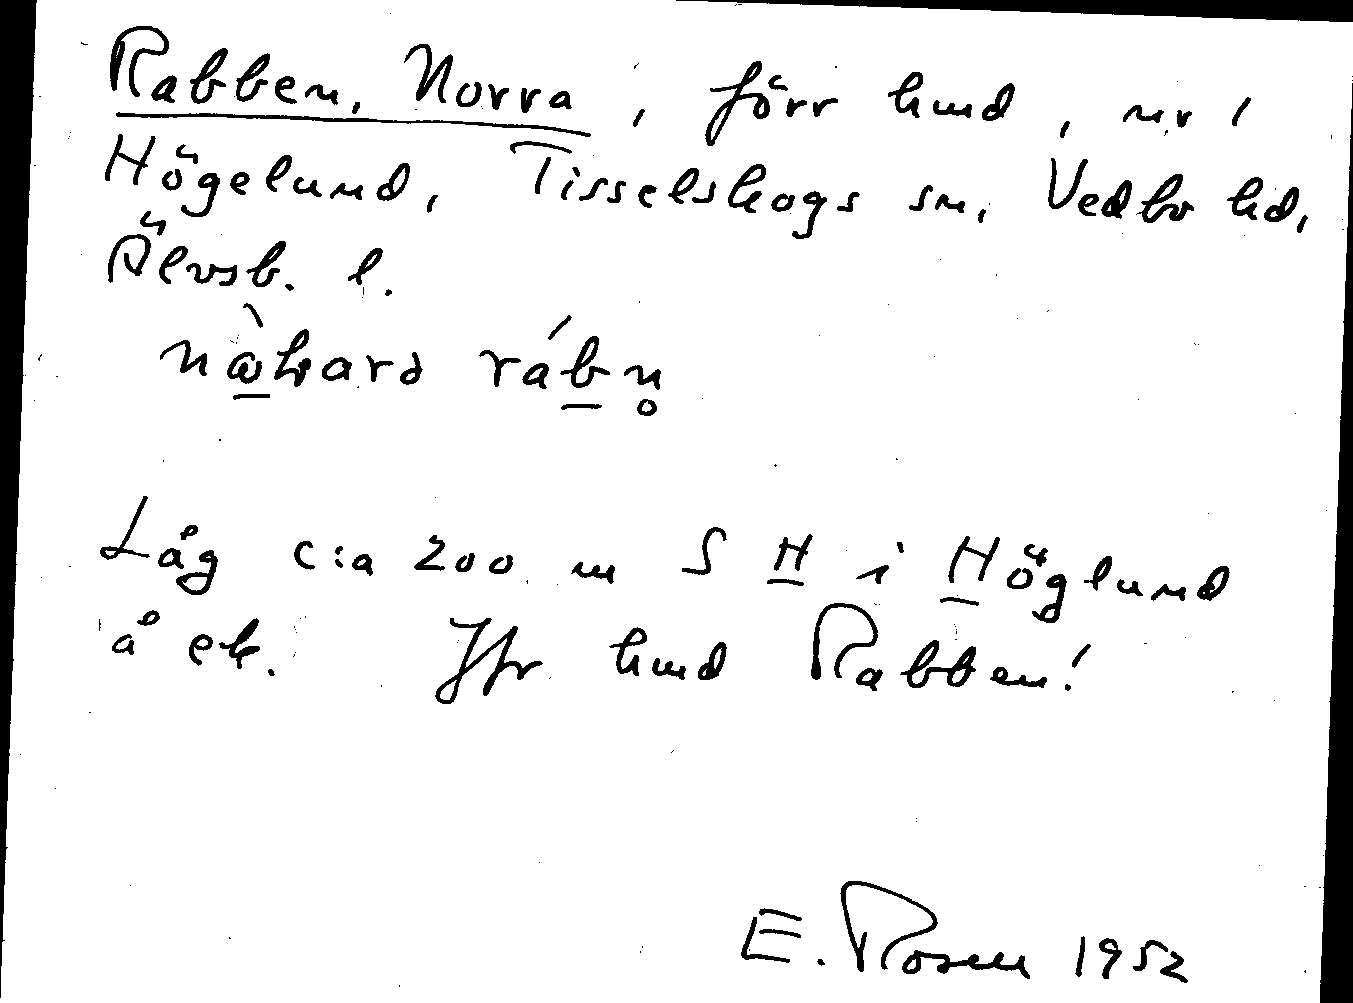 Rabben, Norra, förr hmd, nr 1
Högelund, Tisselskogs sn, Vedbo hd,
Älvsb. l.
rábn̥
Låg c:a 200 m S H i Höglund
å ek. Jfr hmd Rabben!
E. Rosen 1952